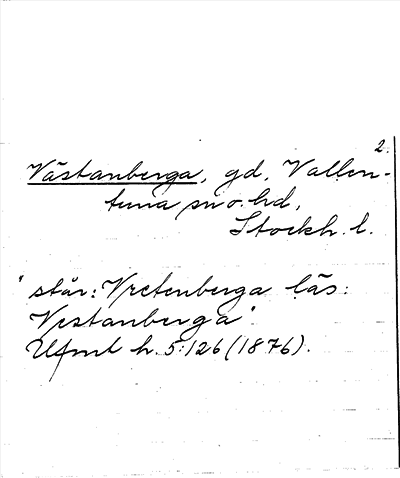 2.
Västanberga, gd, Vallen-
tuna sn o. hd,
Stockh. l.
"står: Vretenberga läs:
Vestanberga".
Ufmt h. 5:126 (1876).